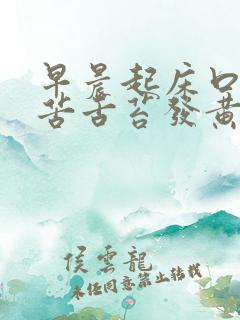 早晨起床口
苦舌苔發黃
侯雲龍
未經同意禁止轉載